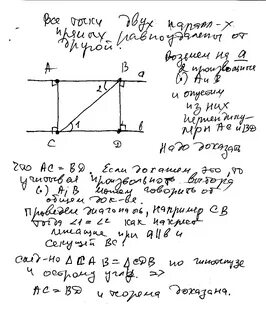 Все точки двух паралл-х
прямых равноудалены от
другой.
Возьмем на a
2 произвольные
(·) A и B
и опустим
из них
перпендику-
ляры AC и BD
A B a
2
1
C D b
Надо доказать
Что AC = BD. Если докажем это, то
учитывая произвольность выбора
(·) A и B можем говорить об
общем док-ве.
Проведем диагональ, например CB
тогда ∠1=∠2 как накрест
лежащие при a∥b и
секущей BC!
след-но △CAB = △CDB по гипотенузе
и острому углу. =>
AC = BD и теорема доказана.